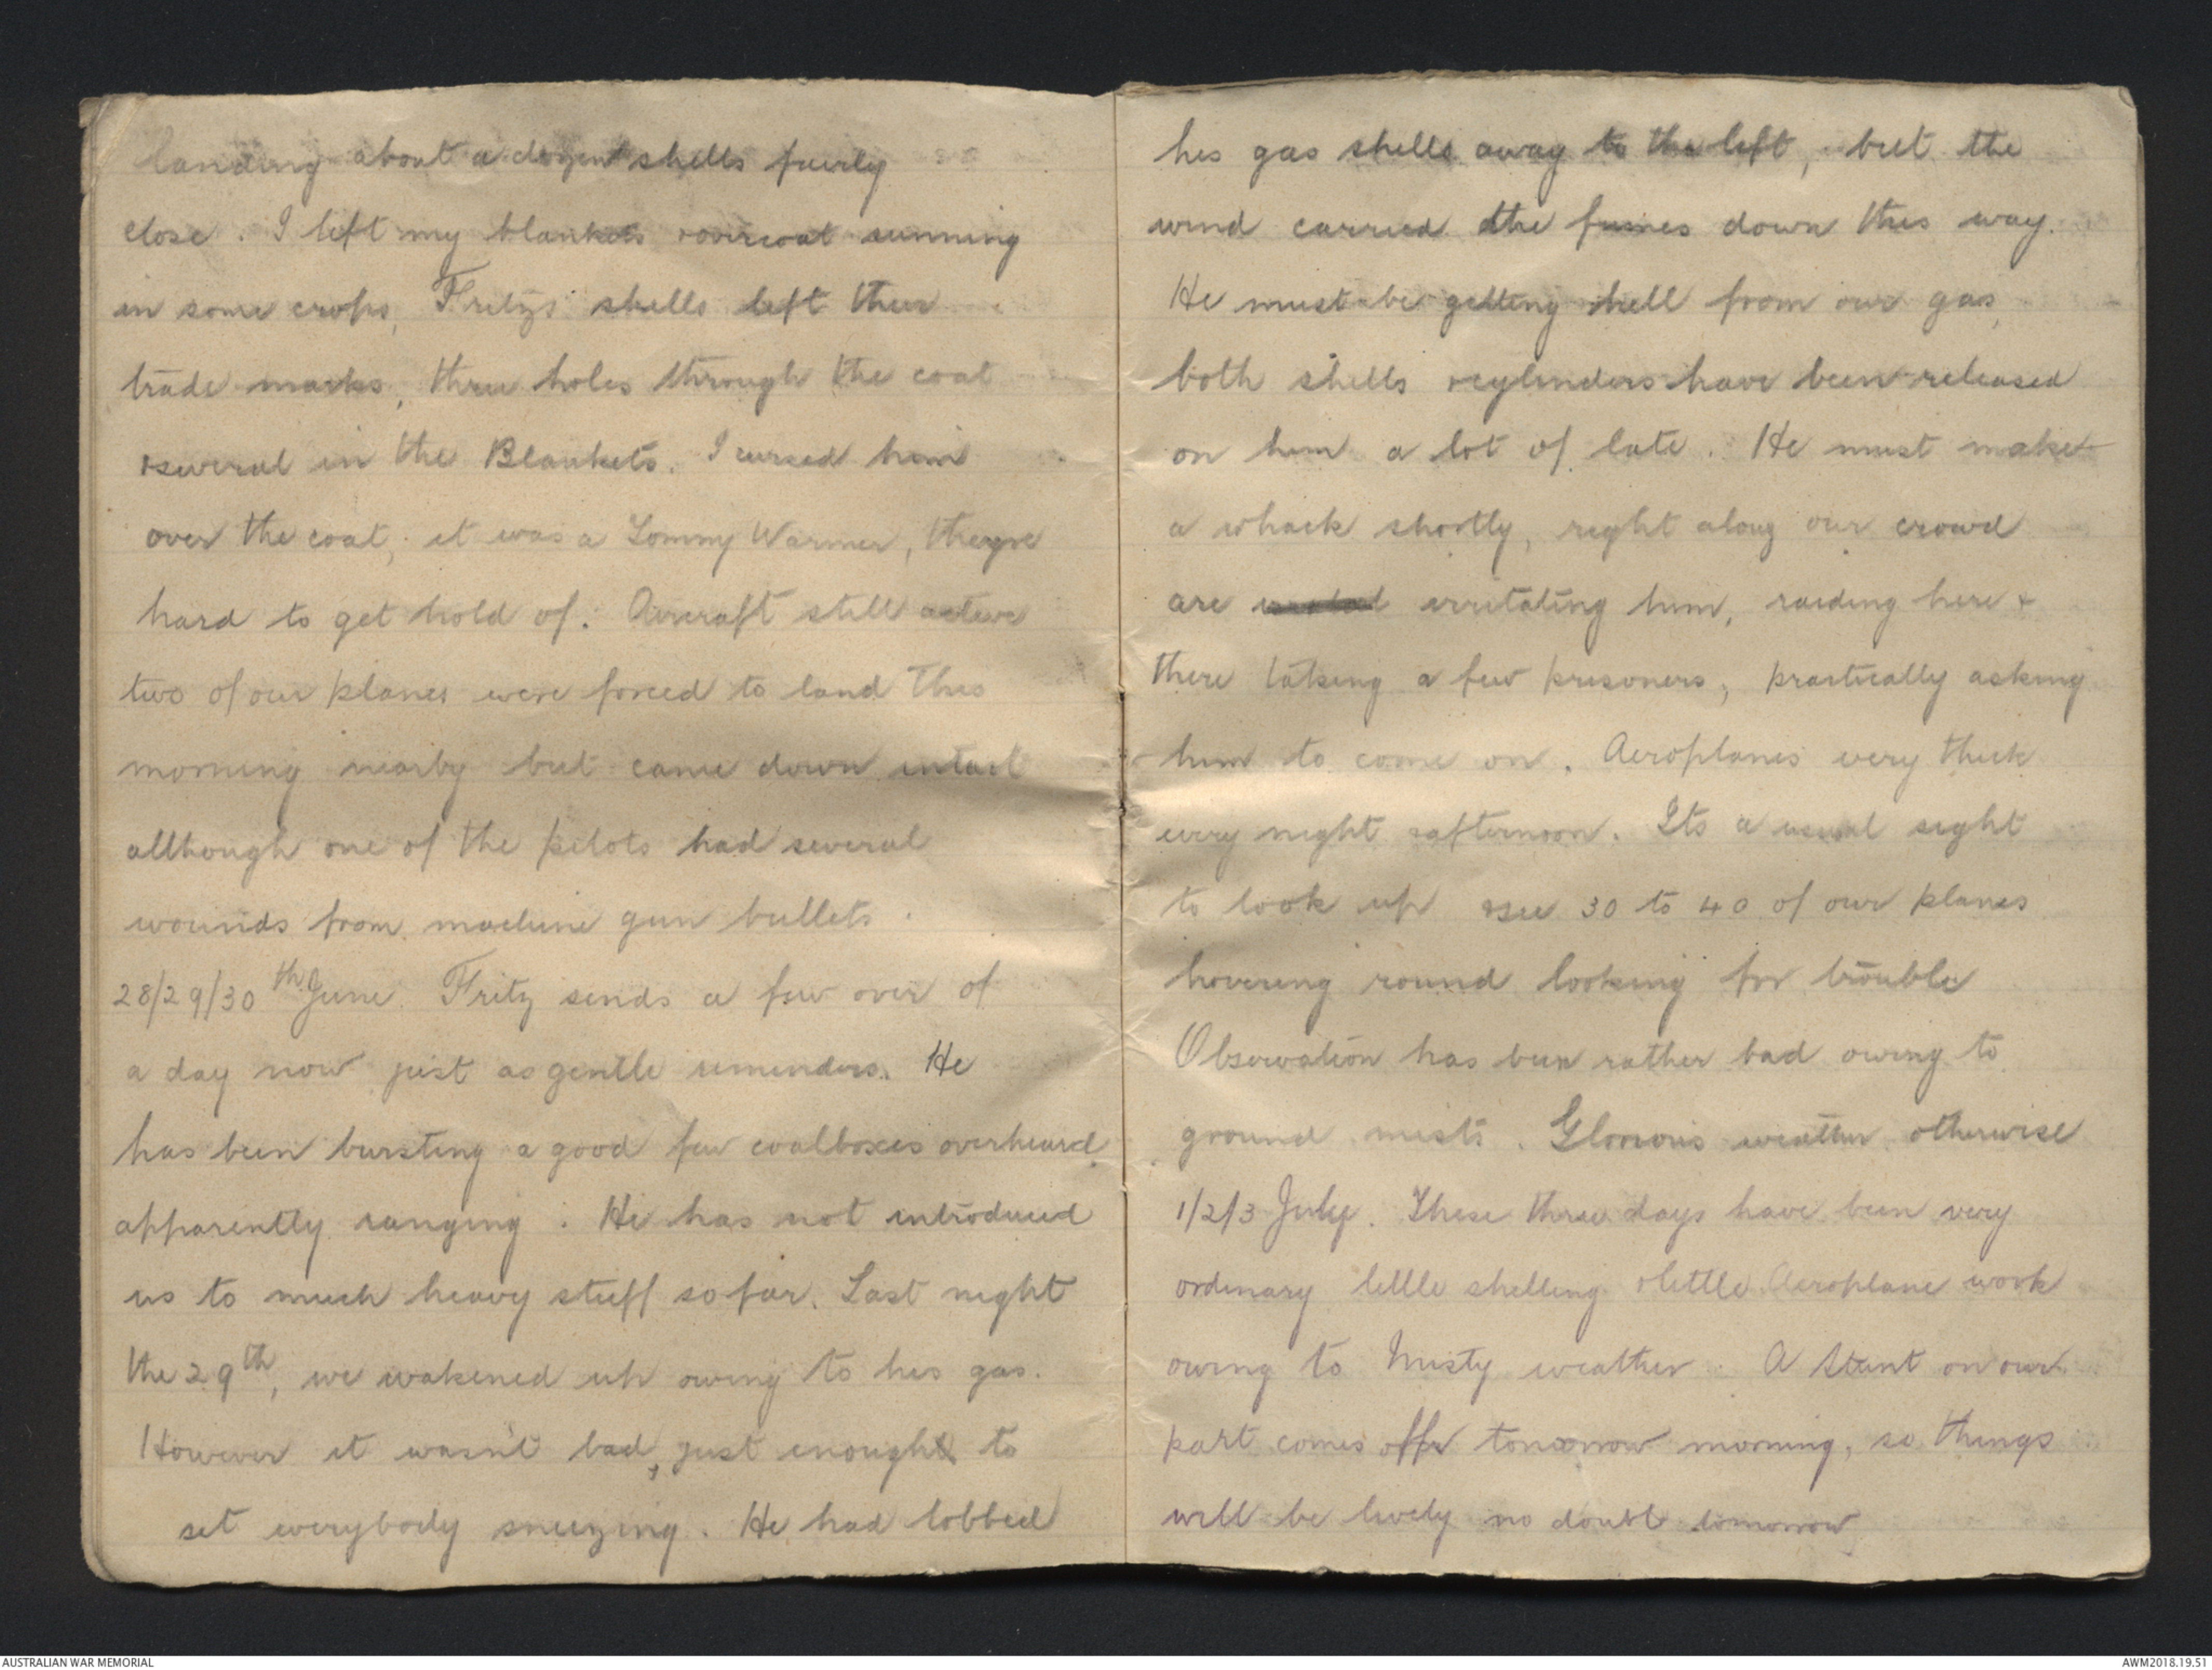 landing about a dozen shells fairly
close. I left my blankets & overcoat sunning
in some crops, Fritz's shells left their
trade marks, three holes through the coat
& several in the Blankets. I cursed him
over the coat, it was a Tommy Warmer, theyre
hard to get hold of. Aircraft still active
two of our planes were forced to land this
morning nearby but came down intact
although one of the pilots had several
wounds from machine gun bullets.
28/29/30th June. Fritz sends a few over of
a day now just as gentle reminders. He
has been bursting a good few coalboxes overheard,
apparently ranging. He has not introduced
us to much heavy stuff so far. Last night
the 29th, we wakened up owing to his gas.
However it wasn't bad, just enough to
set everybody sneezing. He had lobbed
his gas shells away to the left, but the
wind carried the fumes down this way.
He must be getting hell from our gas,
both shells & cylinders have been released
on him a lot of late. He must make
a whack shortly, right along our crowd
are irritating him, raiding here &
there taking a few prisoners, practically asking
him to come on. Aeroplanes very thick
every night & afternoon. Its a usual sight
to look up & see 30 to 40 of our planes
hovering round looking for trouble
Observation has been rather bad owing to
ground mists. Glorious weather otherwise
1/2/3 July. These three days have been very
ordinary little shelling & little Aeroplane work
owing to Misty weather. A Stunt on our
part comes off tomorrow morning, so things
will be lively no doubt tomorrow
AUSTRALIAN WAR MEMORIAL
AWM2018.19.51